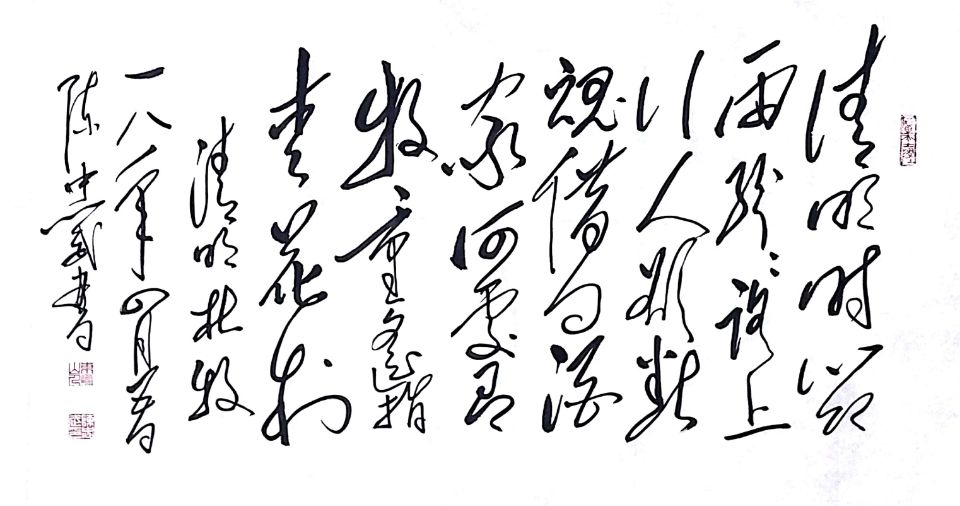 清明时节
雨纷纷路上
行人欲断
魂借问酒
家何处有
牧童遥指
杏花村
清明杜牧
一八年四月
陈忠 书